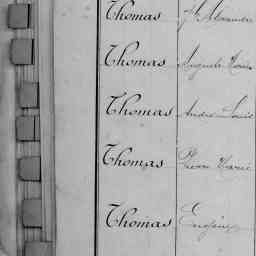 Thomas Js Alexandre
Thomas Auguste Marie
Thomas André Louis
Thomas Pierre Marie
Thomas Eugène